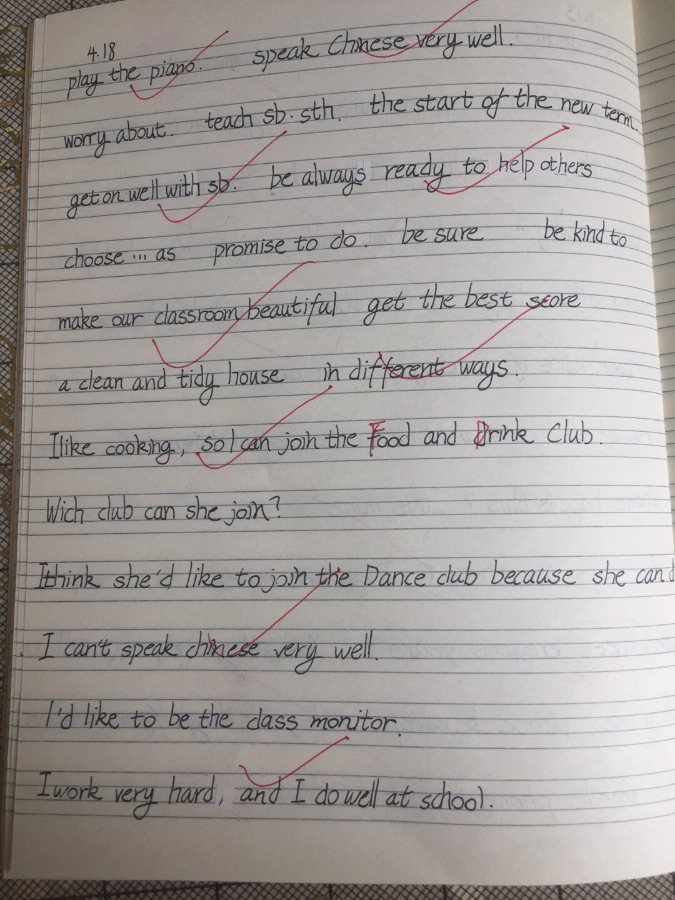 4.18
play the piano. speak Chinese very well.
worry about. teach sb. sth. the start of the new term.
get on well with sb. be always ready to help others
choose ... as promise to do. be sure be kind to
make our classroom beautiful get the best score
a clean and tidy house in different ways.
I like cooking, so I can join the Food and Drink Club.
Wich club can she join?
I think she'd like to join the Dance club because she can
I can't speak chinese very well.
I'd like to be the class monitor.
I work very hard, and I do well at school.